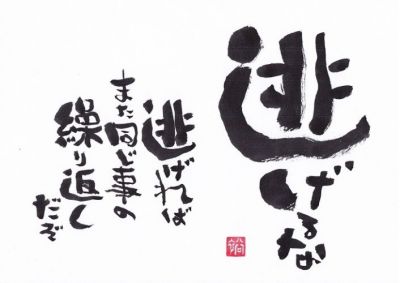 逃げるな
逃げれば
また同じ事の
繰り返し
だぞ